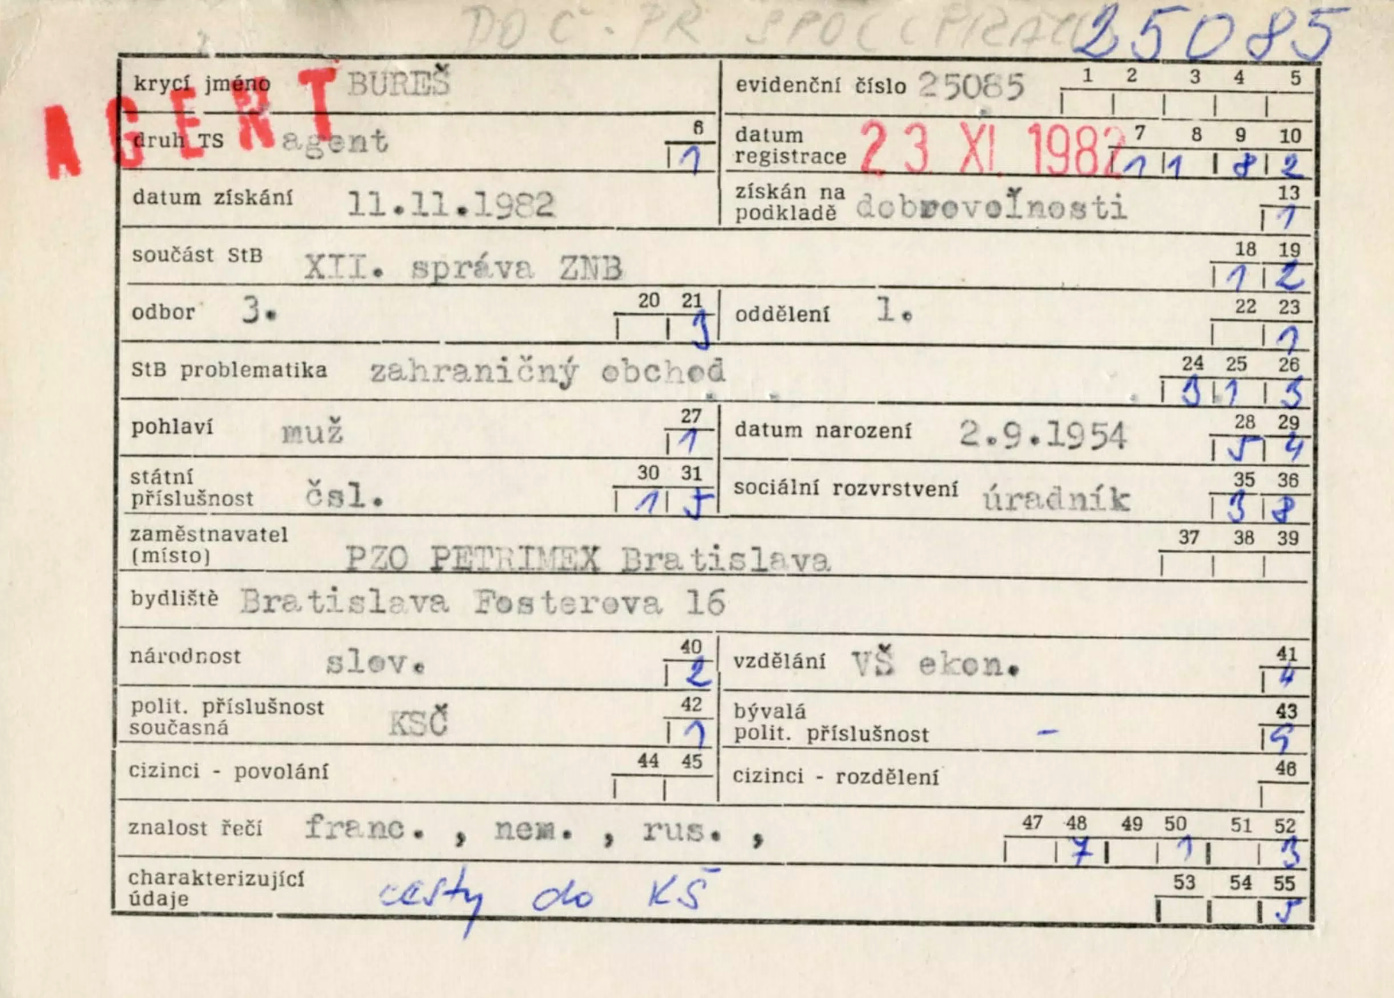 DOČ. PR SPOL
25085
AGENT
krycí jméno BUREŠ
evidenční číslo 25085 1 2 3 4 5
druh TS agent 6 1
datum registrace 23 XI. 1982 7 8 9 10 1 1 8 2
datum získání 11.11.1982
získán na podkladě dobrovoľnosti 13 1
součást StB XII. správa ZNB 18 19 1 2
odbor 3. 20 21 3
oddělení 1. 22 23 1
StB problematika zahraničný obchod 24 25 26 3 1 3
pohlaví muž 27 1
datum narození 2.9.1954 28 29 5 4
státní příslušnost čsl. 30 31 1 5
sociální rozvrstvení úradník 35 36 3 8
zaměstnavatel (místo) PZO PETRIMEX Bratislava 37 38 39
bydliště Bratislava Fosterova 16
národnost slov. 40 2
vzdělání VŠ ekon. 41 4
polit. příslušnost současná KSČ 42 1
bývalá polit. příslušnost - 43 9
cizinci - povolání 44 45
cizinci - rozdělení 46
znalost řečí franc. , nem. , rus. , 47 48 49 50 51 52 7 1 3
charakterizující údaje cesty do KŠ 53 54 55 5